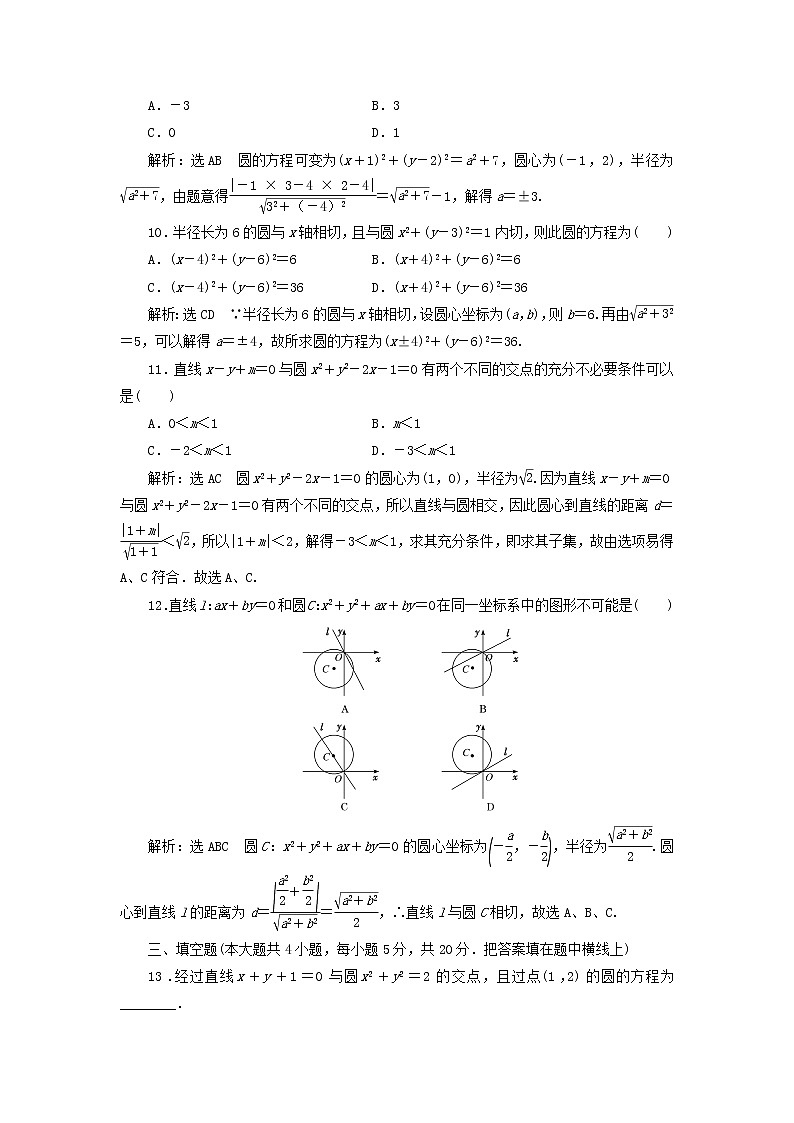 A.－3  B.3
C.0  D.1
解析:选 AB　圆的方程可变为(x＋1)²＋(y－2)²＝a²＋7,圆心为(－1,2),半径为
√(a²＋7),由题意得|－1 × 3－4 × 2－4|/√(3²＋(－4)²)＝√(a²＋7)－1,解得 a＝±3.
10.半径长为 6 的圆与 x 轴相切,且与圆 x²＋(y－3)²＝1 内切,则此圆的方程为(　　)
A.(x－4)²＋(y－6)²＝6  B.(x＋4)²＋(y－6)²＝6
C.(x－4)²＋(y－6)²＝36  D.(x＋4)²＋(y－6)²＝36
解析:选 CD　∵半径长为 6 的圆与 x 轴相切,设圆心坐标为(a,b),则 b＝6.再由√(a²＋3²)
＝5,可以解得 a＝±4,故所求圆的方程为(x±4)²＋(y－6)²＝36.
11.直线 x－y＋m＝0 与圆 x²＋y²－2x－1＝0 有两个不同的交点的充分不必要条件可以
是(　　)
A.0＜m＜1  B.m＜1
C.－2＜m＜1  D.－3＜m＜1
解析:选 AC　圆 x²＋y²－2x－1＝0 的圆心为(1,0),半径为√2.因为直线 x－y＋m＝0
与圆 x²＋y²－2x－1＝0 有两个不同的交点,所以直线与圆相交,因此圆心到直线的距离 d＝
|1＋m|/√(1＋1)＜√2,所以|1＋m|＜2,解得－3＜m＜1,求其充分条件,即求其子集,故由选项易得
A、C 符合.故选 A、C.
12.直线 l:ax＋by＝0 和圆 C:x²＋y²＋ax＋by＝0 在同一坐标系中的图形不可能是(　　)
l y  y l
O x  O x
C  C
A  B
l y  y
C  C l
O x  O x
C  D
解析:选 ABC　圆 C: x²＋y²＋ax＋by＝0 的圆心坐标为(－a/2,－b/2),半径为√(a²＋b²)/2.圆
心到直线 l 的距离为 d＝|a²/2＋b²/2|/√(a²＋b²)＝√(a²＋b²)/2,∴直线 l 与圆 C 相切,故选 A、B、C.
三、填空题(本大题共 4 小题,每小题 5 分,共 20 分.把答案填在题中横线上)
13.经过直线 x＋y＋1＝0 与圆 x²＋y²＝2 的交点,且过点(1,2)的圆的方程为
________.